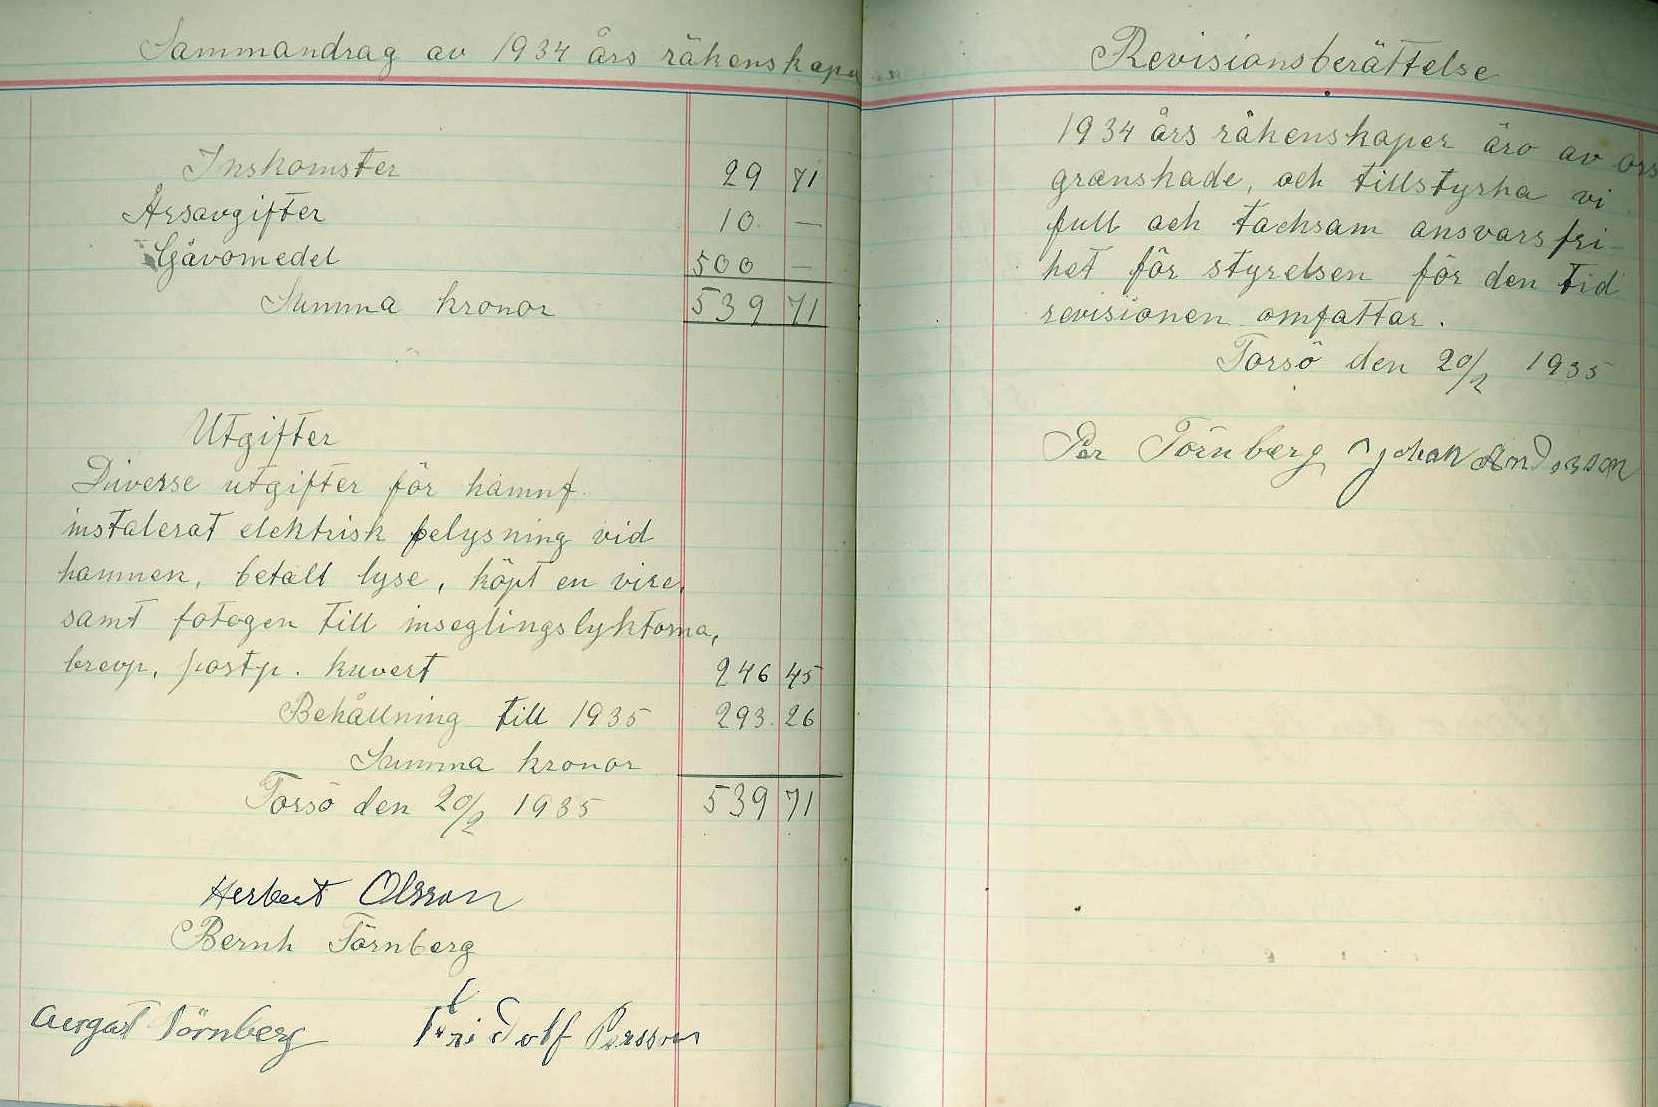 Sammandrag av 1934 års räkenskaper
Inskomster 29 71
Årsavgifter 10 —
Gåvomedel 500 —
Summa kronor 539 71
Utgifter
Diverse utgifter för hamnf.
instalerat elektrisk belysning vid
hamnen, betalt lyse, köpt en vire,
samt fotogen till inseglingslyktorna,
brevp. postp. kuvert 246 45
Behållning till 1935 293. 26
Summa kronor
Torsö den 20/2 1935 539 71
Herbert Olsson
Bernh Törnberg
August Törnberg Fridolf Persson
Revisionsberättelse
1934 års räkenskaper äro av oss
granskade, och tillstyrka vi
full och tacksam ansvarsfri-
het för styrelsen för den tid
revisionen omfattar.
Torsö den 20/2 1935
Per Törnberg Johan Andersson